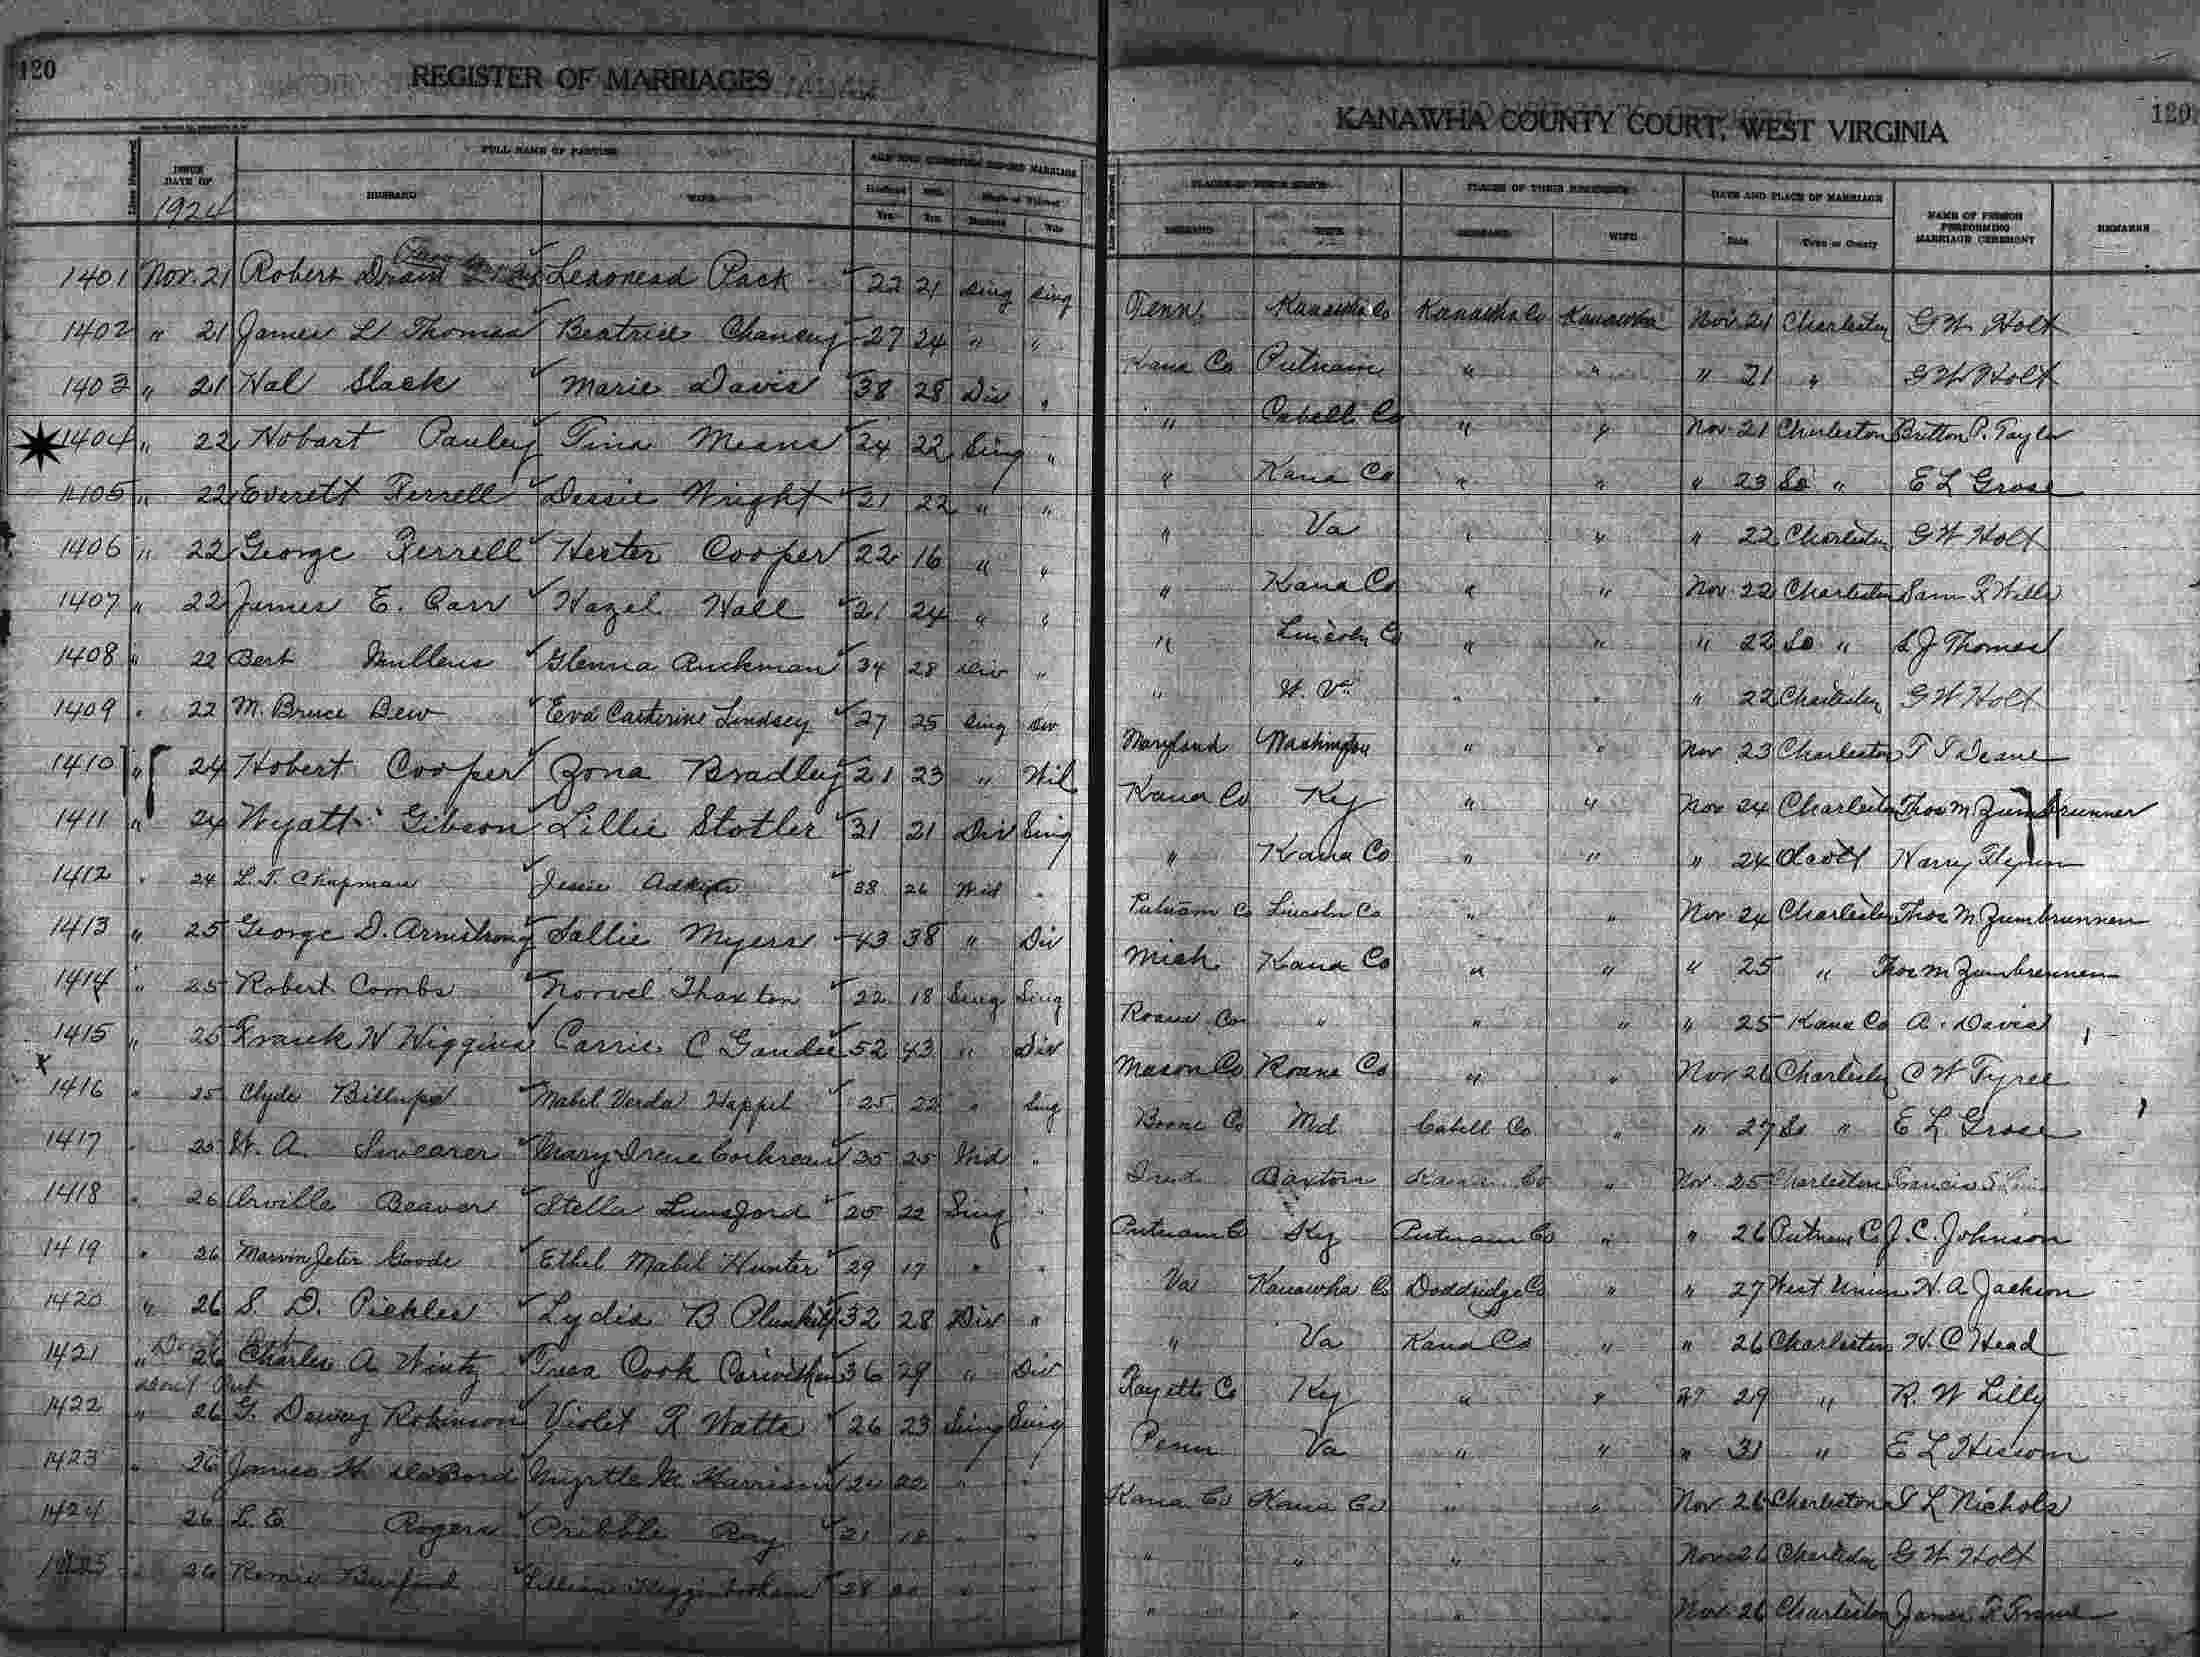 120
REGISTER OF MARRIAGES
ISSUE DATE OF 1924
FULL NAME OF PARTIES
HUSBAND WIFE
AGE AND CONDITION BEFORE MARRIAGE
1401 Nov. 21 Robert Pack 22 21 Sing Sing
1402 " 21 James L Thomas Beatrice Chancey 27 24 " "
1403 " 21 Hal Slack Marie Davis 38 28 Div "
1404 " 22 Hobart Pauley Tina Means 24 22 Sing "
1405 " 22 Everett Ferrell Dessie Wright 21 22 " "
1406 " 22 George Ferrell Hester Cooper 22 16 " "
1407 " 22 James E. Carr Hazel Hall 21 24 " "
1408 " 22 Bert Mullens Glenna Ruckman 34 28 Div "
1409 " 22 M. Bruce Dew Eva Catherine Lindsey 27 25 Sing Div
1410 " 24 Hobert Cooper Zona Bradley 21 23 " Wid
1411 " 24 Wyatt Gibson Lillie Stotler 31 21 Div Sing
1412 " 24 L. T. Chapman Jessie Adkins 38 26 Wid "
1413 " 25 George D. Armstrong Sallie Myers 43 38 " Div
1414 " 25 Robert Combs Norvel Thaxton 22 18 Sing Sing
1415 " 25 Frank W Wiggins Carrie C Gandee 52 43 " Div
1416 " 25 Clyde Billups Mabel Verda Happel 25 22 " Sing
1417 " 25 W. A. Swearer Mary Irene Cochrean 35 25 Wid "
1418 " 26 Orville Beaver Stella Lunsford 25 22 Sing "
1419 " 26 Marvin Jeter Goode Ethel Mabel Hunter 29 17 " "
1420 " 26 S. D. Pickles Lydia B Plunkett 32 28 Div "
1421 " 26 Charles A. Wintz Tresa Cook 36 29 " Div
Don't Pub
1422 " 26 G. Dewey Robinson Violet R Watts 26 23 Sing Sing
1423 " 26 James H DeBord Myrtle M. Harrison 24 22 " "
1424 " 26 L. E. Rogers Pribble Ray 21 18 " "
1425 " 26 Romie Burford Lillian Higginbotham 28 20 " "
120
KANAWHA COUNTY COURT, WEST VIRGINIA
PLACES OF THEIR BIRTH
PLACES OF THEIR RESIDENCE
DATE AND PLACE OF MARRIAGE
NAME OF PERSON PERFORMING MARRIAGE CEREMONY
REMARKS
HUSBAND WIFE HUSBAND WIFE Date Town or County
Tenn. Kanawha Co Kanawha Co Kanawha Nov. 21 Charleston G W Holt
Kana Co Putnam " " " 21 " G W Holt
" Cabell Co " " Nov 21 Charleston Britton P. Taylor
" Kana Co " " " 23 So " E L Grose
" Va " " " 22 Charleston G W Holt
" Kana Co " " Nov. 22 Charleston Sam F Wells
" Lincoln Co " " " 22 So " S J Thomas
" W. Va " " " 22 Charleston G W Holt
Maryland Washington " " Nov 23 Charleston T S Deane
Kana Co Ky " " Nov 24 Charleston Thos M. Zumbrunner
" Kana Co " " " 24 Olcott Harry Flynn
Putnam Co Lincoln Co " " Nov. 24 Charleston Thos M Zumbrunnen
Mich. Kana Co " " " 25 " Thos M Zumbrunnen
Roane Co " " " " 25 Kana Co A. Davis
Mason Co Roane Co " " Nov 26 Charleston C W Tyree
Boone Co Md Cabell Co " " 27 So " E L Grose
Ind Baxton Kana Co " Nov. 25 Charleston Francis S
Putnam Co Ky Putnam Co " " 26 Putnam Co J. C. Johnson
Va Kanawha Co Doddridge Co " " 27 West Union H. A Jackson
" Va Kana Co " " 26 Charleston H. C Head
Fayette Co Ky " " " 29 " R. W Lilly
Penn Va " " " 31 " E L Hissom
Kana Co Kana Co " " Nov. 26 Charleston T L Nichols
" " " " Nov 26 Charleston G W Holt
" " " " Nov. 26 Charleston James F